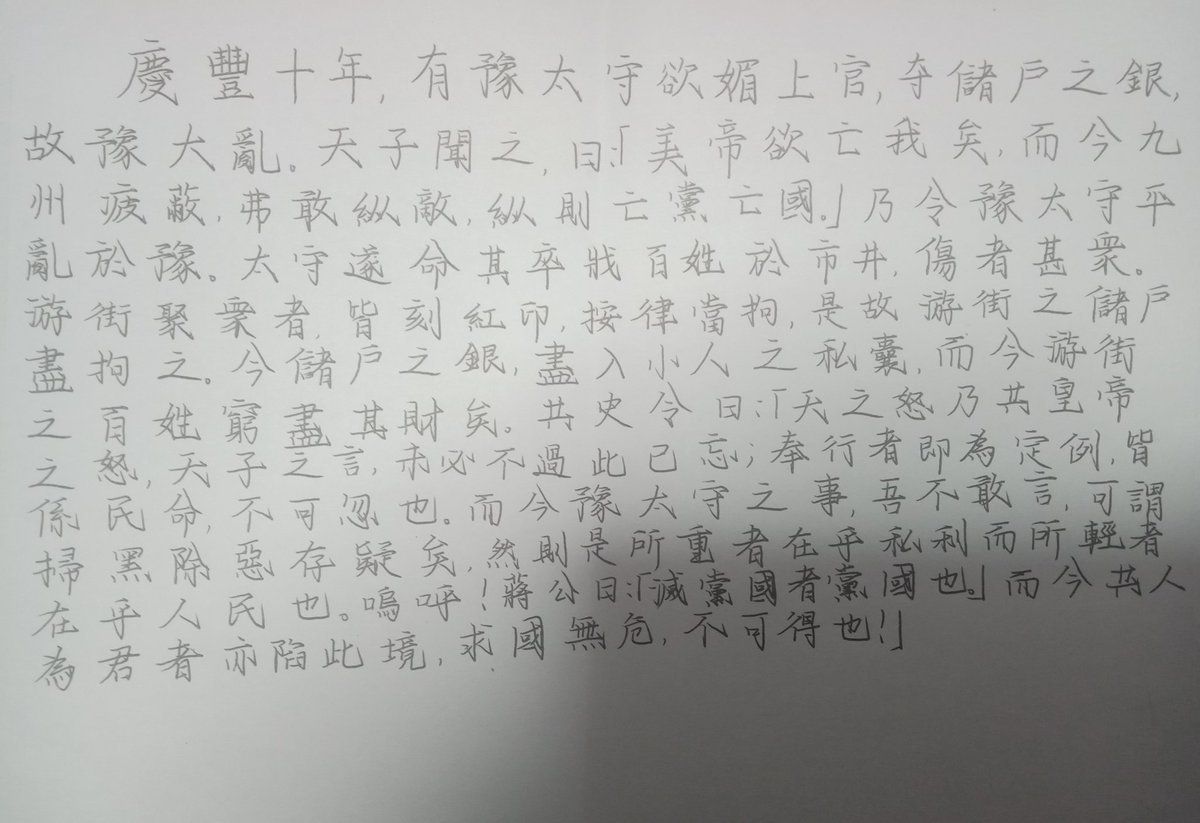 慶豐十年,有豫太守欲媚上官,夺儲戶之銀,
故豫大亂。天子聞之,曰:「美帝欲亡我矣,而今九
州疲蔽,弗敢縱敵,縱則亡黨亡國。」乃令豫太守平
亂於豫。太守遂命其卒戕百姓於市井,傷者甚衆。
游街聚衆者,皆刻紅印,按律當拘,是故游街之儲戶
盡拘之。今儲戶之銀,盡入小人之私囊,而今游街
之百姓窮盡其財矣。共史令曰:「天之怒乃共皇帝
之怒,天子之言,未必不過此已忘;奉行者即為定例,皆
係民命,不可忽也。而今豫太守之事,吾不敢言,可謂
掃黑除惡存疑矣,然則是所重者在乎私利而所輕者
在乎人民也。嗚呼!蔣公曰:「滅黨國者黨國也。」而今共人
為君者亦陷此境,求國無危,不可得也!」